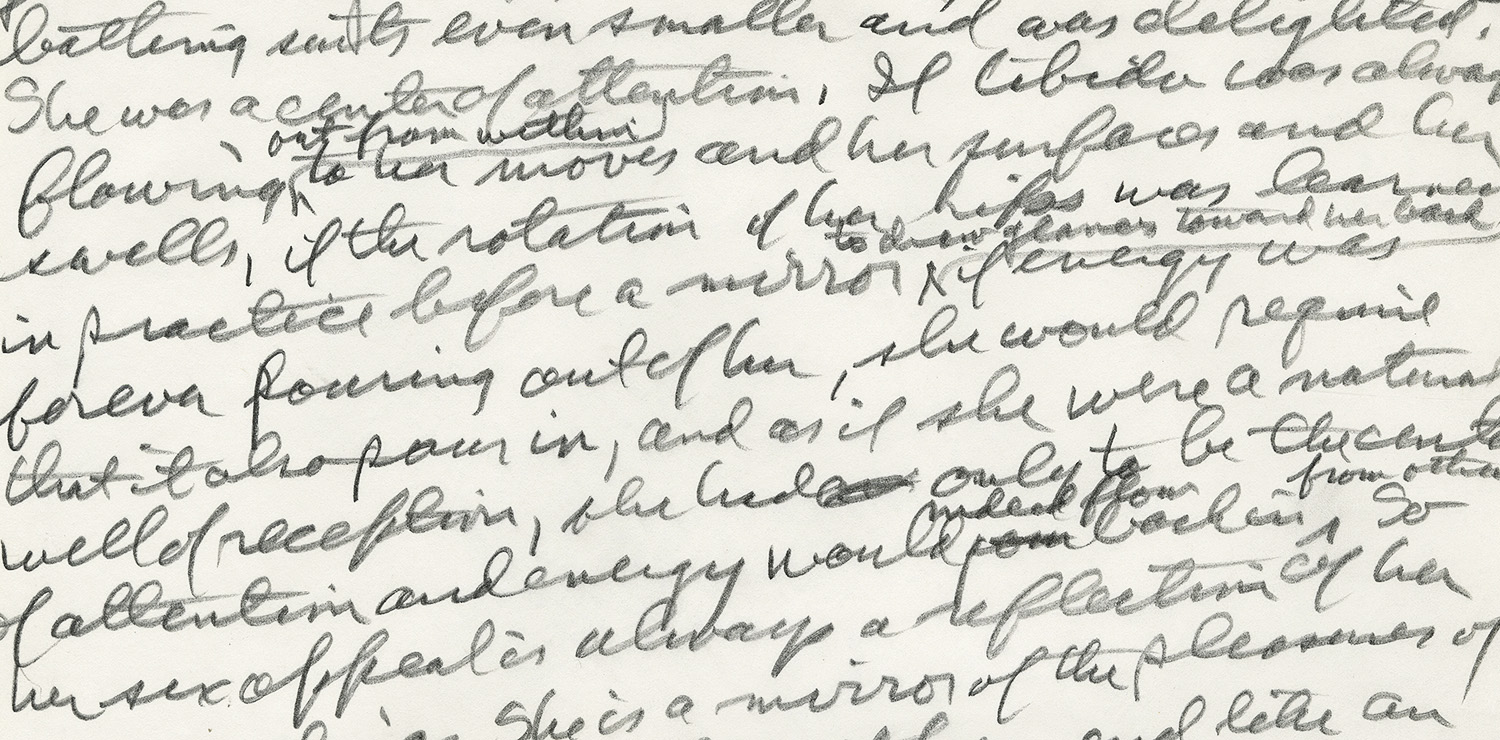 bathing suits even smaller and was delighted.
She was a center of attention. If libido was alway
out from within
flowing to her moves and her surfaces and her
swells, if the rotation of her hips was learned
to draw glances toward her back
in practice before a mirror, if energy was
forever pouring out of her, she would require
that it also pour in, and as if she were a natural
well of reception, she had only to be the cente
indeed flow from other
of attention and energy would back in. So
her sex appeal is always a reflection of her
She is a mirror of the pleasures of
and like an